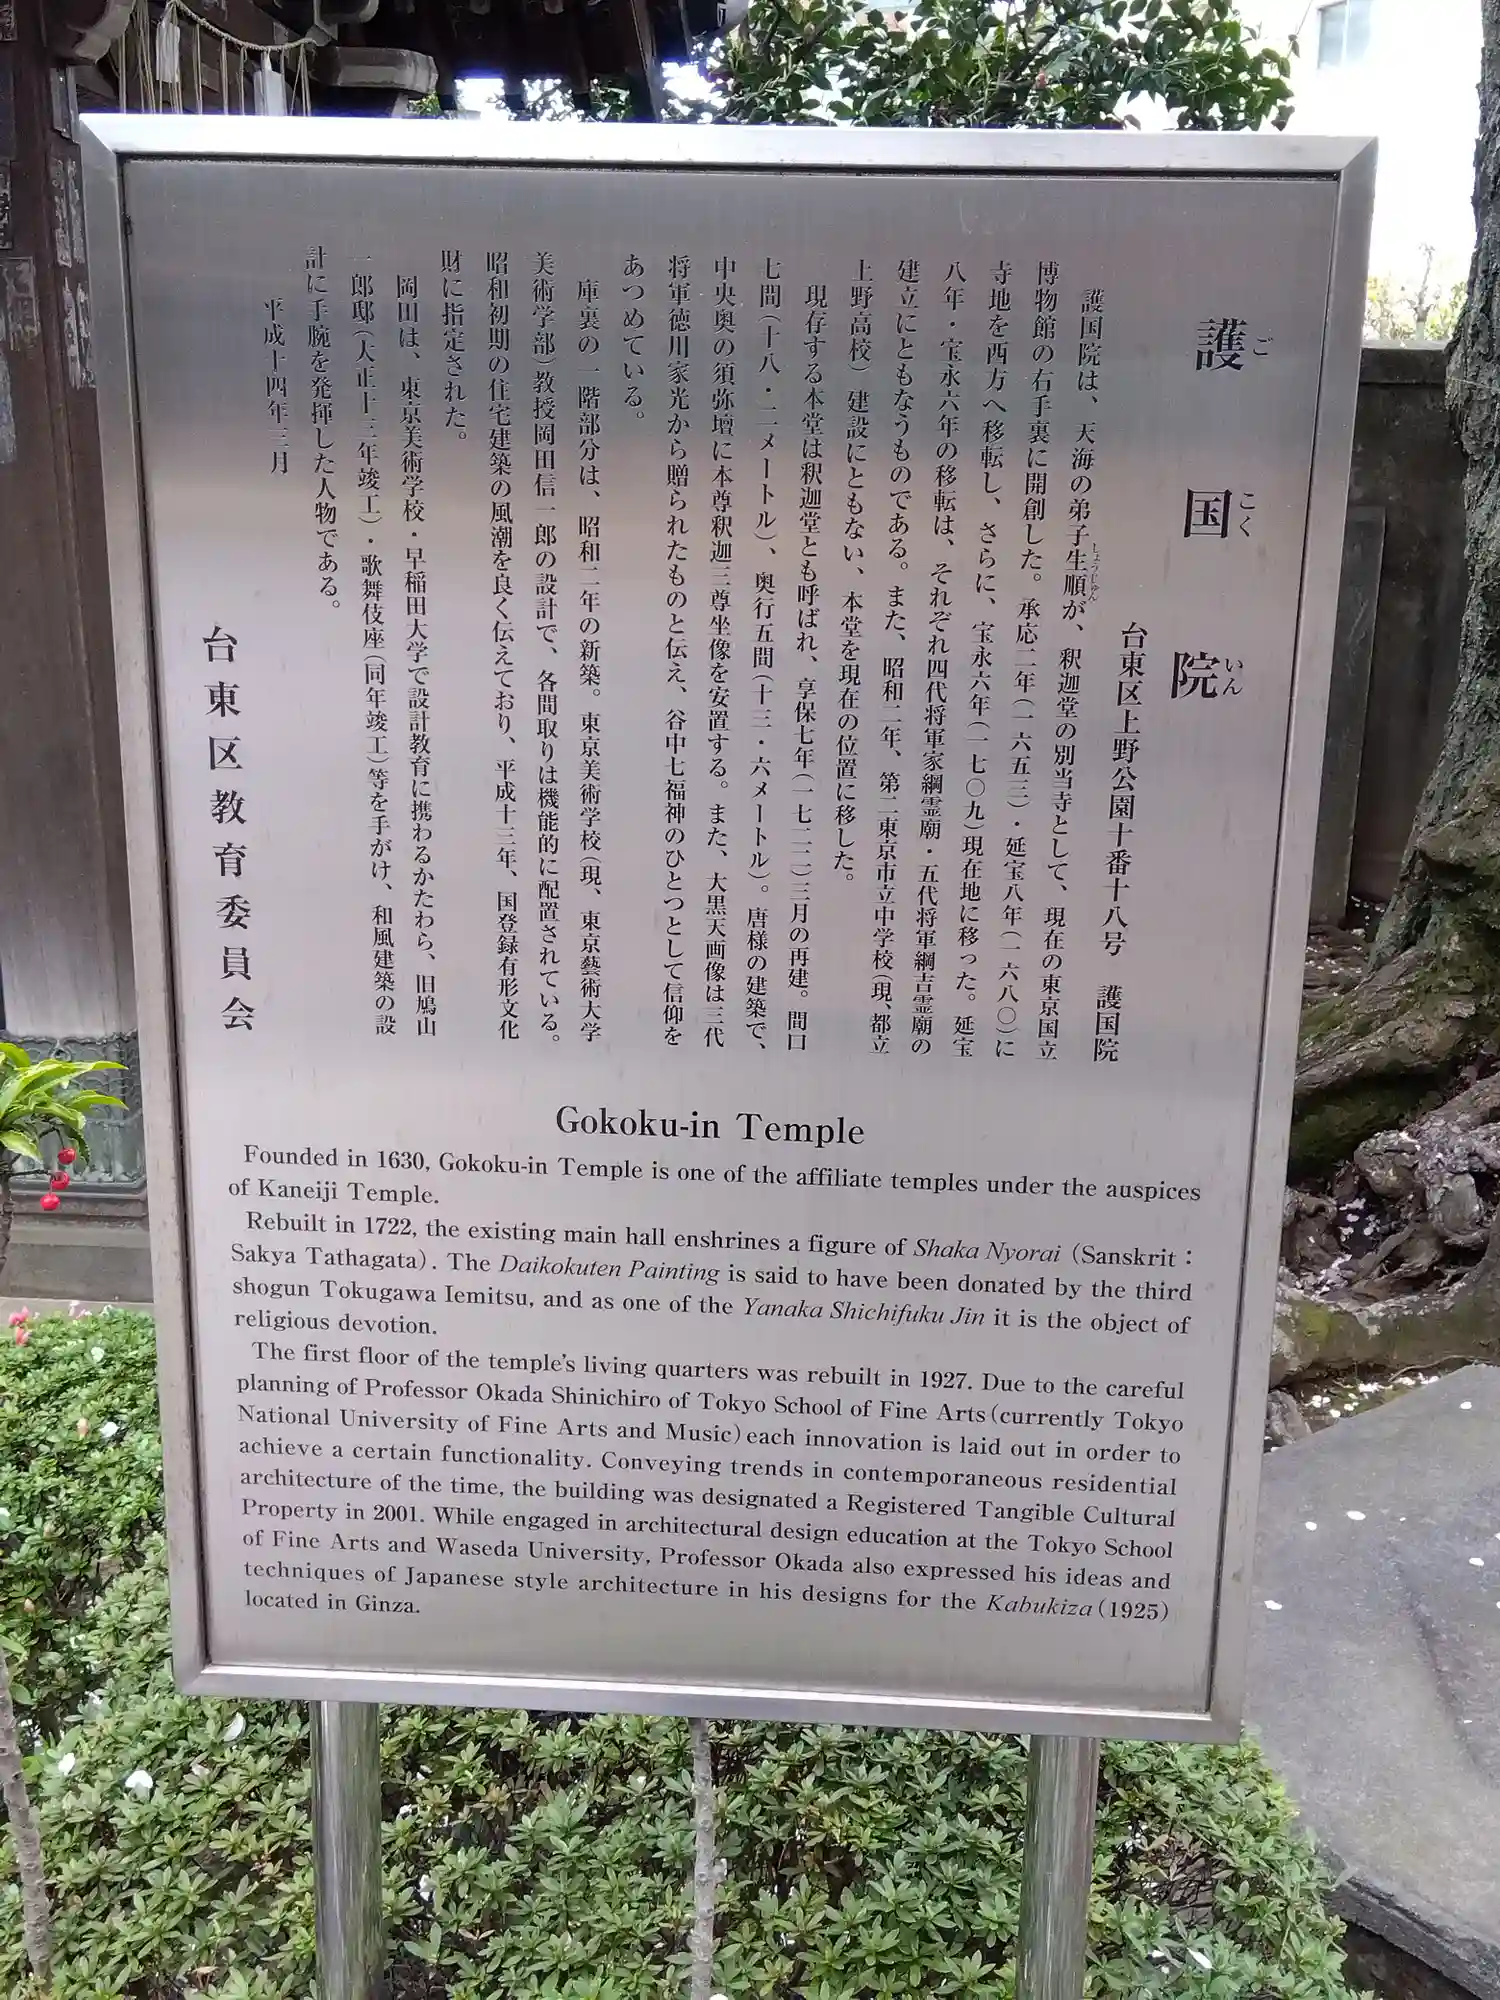 護国院
ごこくいん
台東区上野公園十番十八号　護国院
護国院は、天海の弟子生順が、釈迦堂の別当寺として、現在の東京国立
しょうじゅん
博物館の右手裏に開創した。承応二年(一六五三)・延宝八年(一六八〇)に
寺地を西方へ移転し、さらに、宝永六年(一七〇九)現在地に移った。延宝
八年・宝永六年の移転は、それぞれ四代将軍家綱霊廟・五代将軍綱吉霊廟の
建立にともなうものである。また、昭和二年、第二東京市立中学校(現、都立
上野高校)建設にともない、本堂を現在の位置に移した。
現存する本堂は釈迦堂とも呼ばれ、享保七年(一七二二)三月の再建。間口
七間(十八・二メートル)、奥行五間(十三・六メートル)。唐様の建築で、
中央奥の須弥壇に本尊釈迦三尊坐像を安置する。また、大黒天画像は三代
将軍徳川家光から贈られたものと伝え、谷中七福神のひとつとして信仰を
あつめている。
庫裏の一階部分は、昭和二年の新築。東京美術学校(現、東京藝術大学
美術学部)教授岡田信一郎の設計で、各間取りは機能的に配置されている。
昭和初期の住宅建築の風潮を良く伝えており、平成十三年、国登録有形文化
財に指定された。
岡田は、東京美術学校・早稲田大学で設計教育に携わるかたわら、旧鳩山
一郎邸(大正十三年竣工)・歌舞伎座(同年竣工)等を手がけ、和風建築の設
計に手腕を発揮した人物である。
平成十四年三月
台東区教育委員会
Gokoku-in Temple
Founded in 1630, Gokoku-in Temple is one of the affiliate temples under the auspices
of Kaneiji Temple.
Rebuilt in 1722, the existing main hall enshrines a figure of Shaka Nyorai (Sanskrit：
Sakya Tathagata). The Daikokuten Painting is said to have been donated by the third
shogun Tokugawa Iemitsu, and as one of the Yanaka Shichifuku Jin it is the object of
religious devotion.
The first floor of the temple's living quarters was rebuilt in 1927. Due to the careful
planning of Professor Okada Shinichiro of Tokyo School of Fine Arts(currently Tokyo
National University of Fine Arts and Music)each innovation is laid out in order to
achieve a certain functionality. Conveying trends in contemporaneous residential
architecture of the time, the building was designated a Registered Tangible Cultural
Property in 2001. While engaged in architectural design education at the Tokyo School
of Fine Arts and Waseda University, Professor Okada also expressed his ideas and
techniques of Japanese style architecture in his designs for the Kabukiza(1925)
located in Ginza.